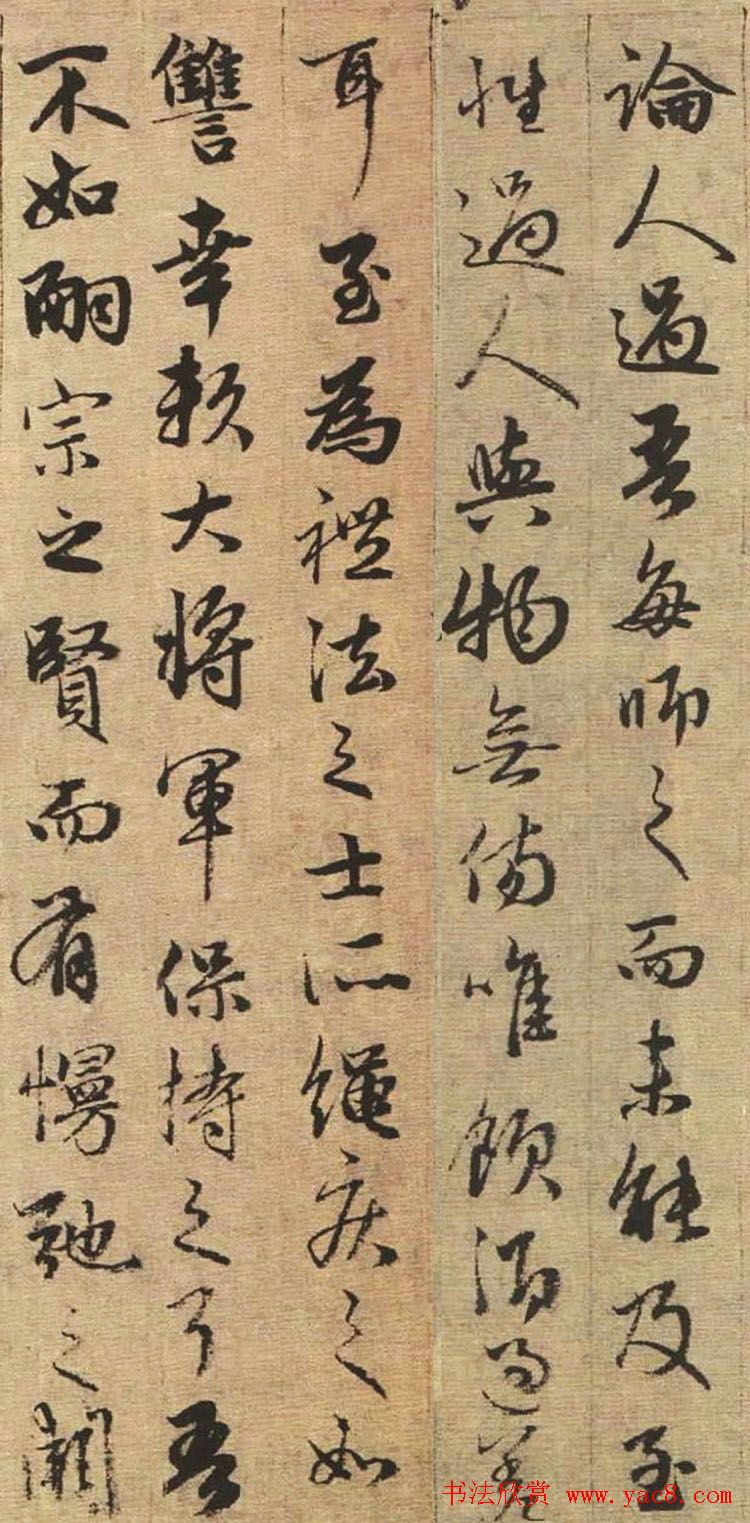 論人過吾每師之而未能及至
性過人與物無傷唯飲酒過差
耳至為禮法之士所繩疾之如
讐幸賴大將軍保持之耳吾
不如嗣宗之賢而有慢弛之闕
书法欣赏 www.yac8.com